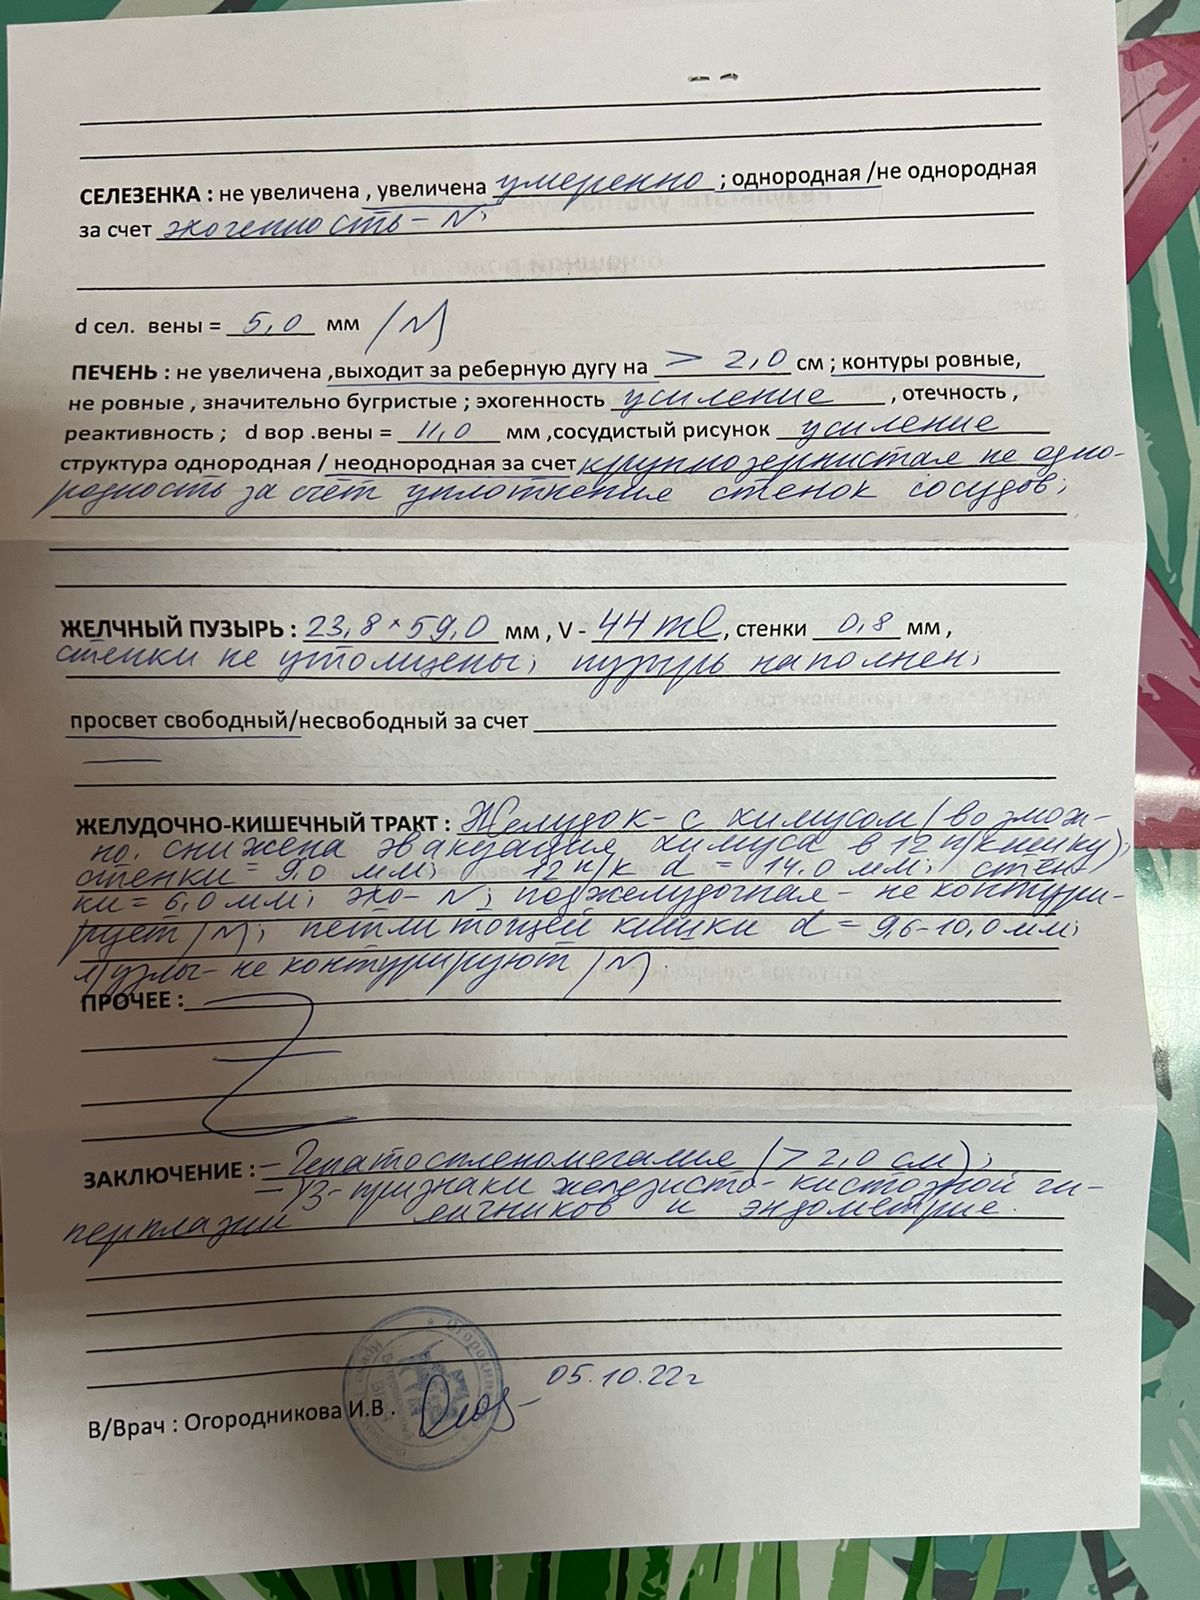 СЕЛЕЗЕНКА : не увеличена , увеличена умеренно ; однородная /не однородная
за счет эхогенность - N;
d сел. вены = 5,0 мм /N/
ПЕЧЕНЬ : не увеличена ,выходит за реберную дугу на > 2,0 см ; контуры ровные,
не ровные , значительно бугристые ; эхогенность усиление , отечность ,
реактивность ; d вор .вены = 11,0 мм ,сосудистый рисунок усиление
структура однородная / неоднородная за счет крупнозернистая не одно-
родность за счёт уплотнения стенок сосудов;
ЖЕЛЧНЫЙ ПУЗЫРЬ : 23,8 × 59,0 мм , V - 44 ml , стенки 0,8 мм ,
стенки не утолщены; пузырь наполнен;
просвет свободный/несвободный за счет
ЖЕЛУДОЧНО-КИШЕЧНЫЙ ТРАКТ : Желудок - с химусом /возмож-
но. снижена эвакуация химуса в 12 п/кишку);
стенки = 9,0 мм; 12 п/к d = 14,0 мм; стен
ки = 6,0 мм; эхо - N; поджелудочная - не контури-
рует /N/; петли тощей кишки d = 9,6-10,0 мм;
л/узлы - не контурируют /N/.
ПРОЧЕЕ :
ЗАКЛЮЧЕНИЕ : - Гепатоспленомегалия (> 2,0 см);
- УЗ-признаки железисто-кистозной ги-
перплазии яичников и эндометрие.
05.10.22г
В/Врач : Огородникова И.В .